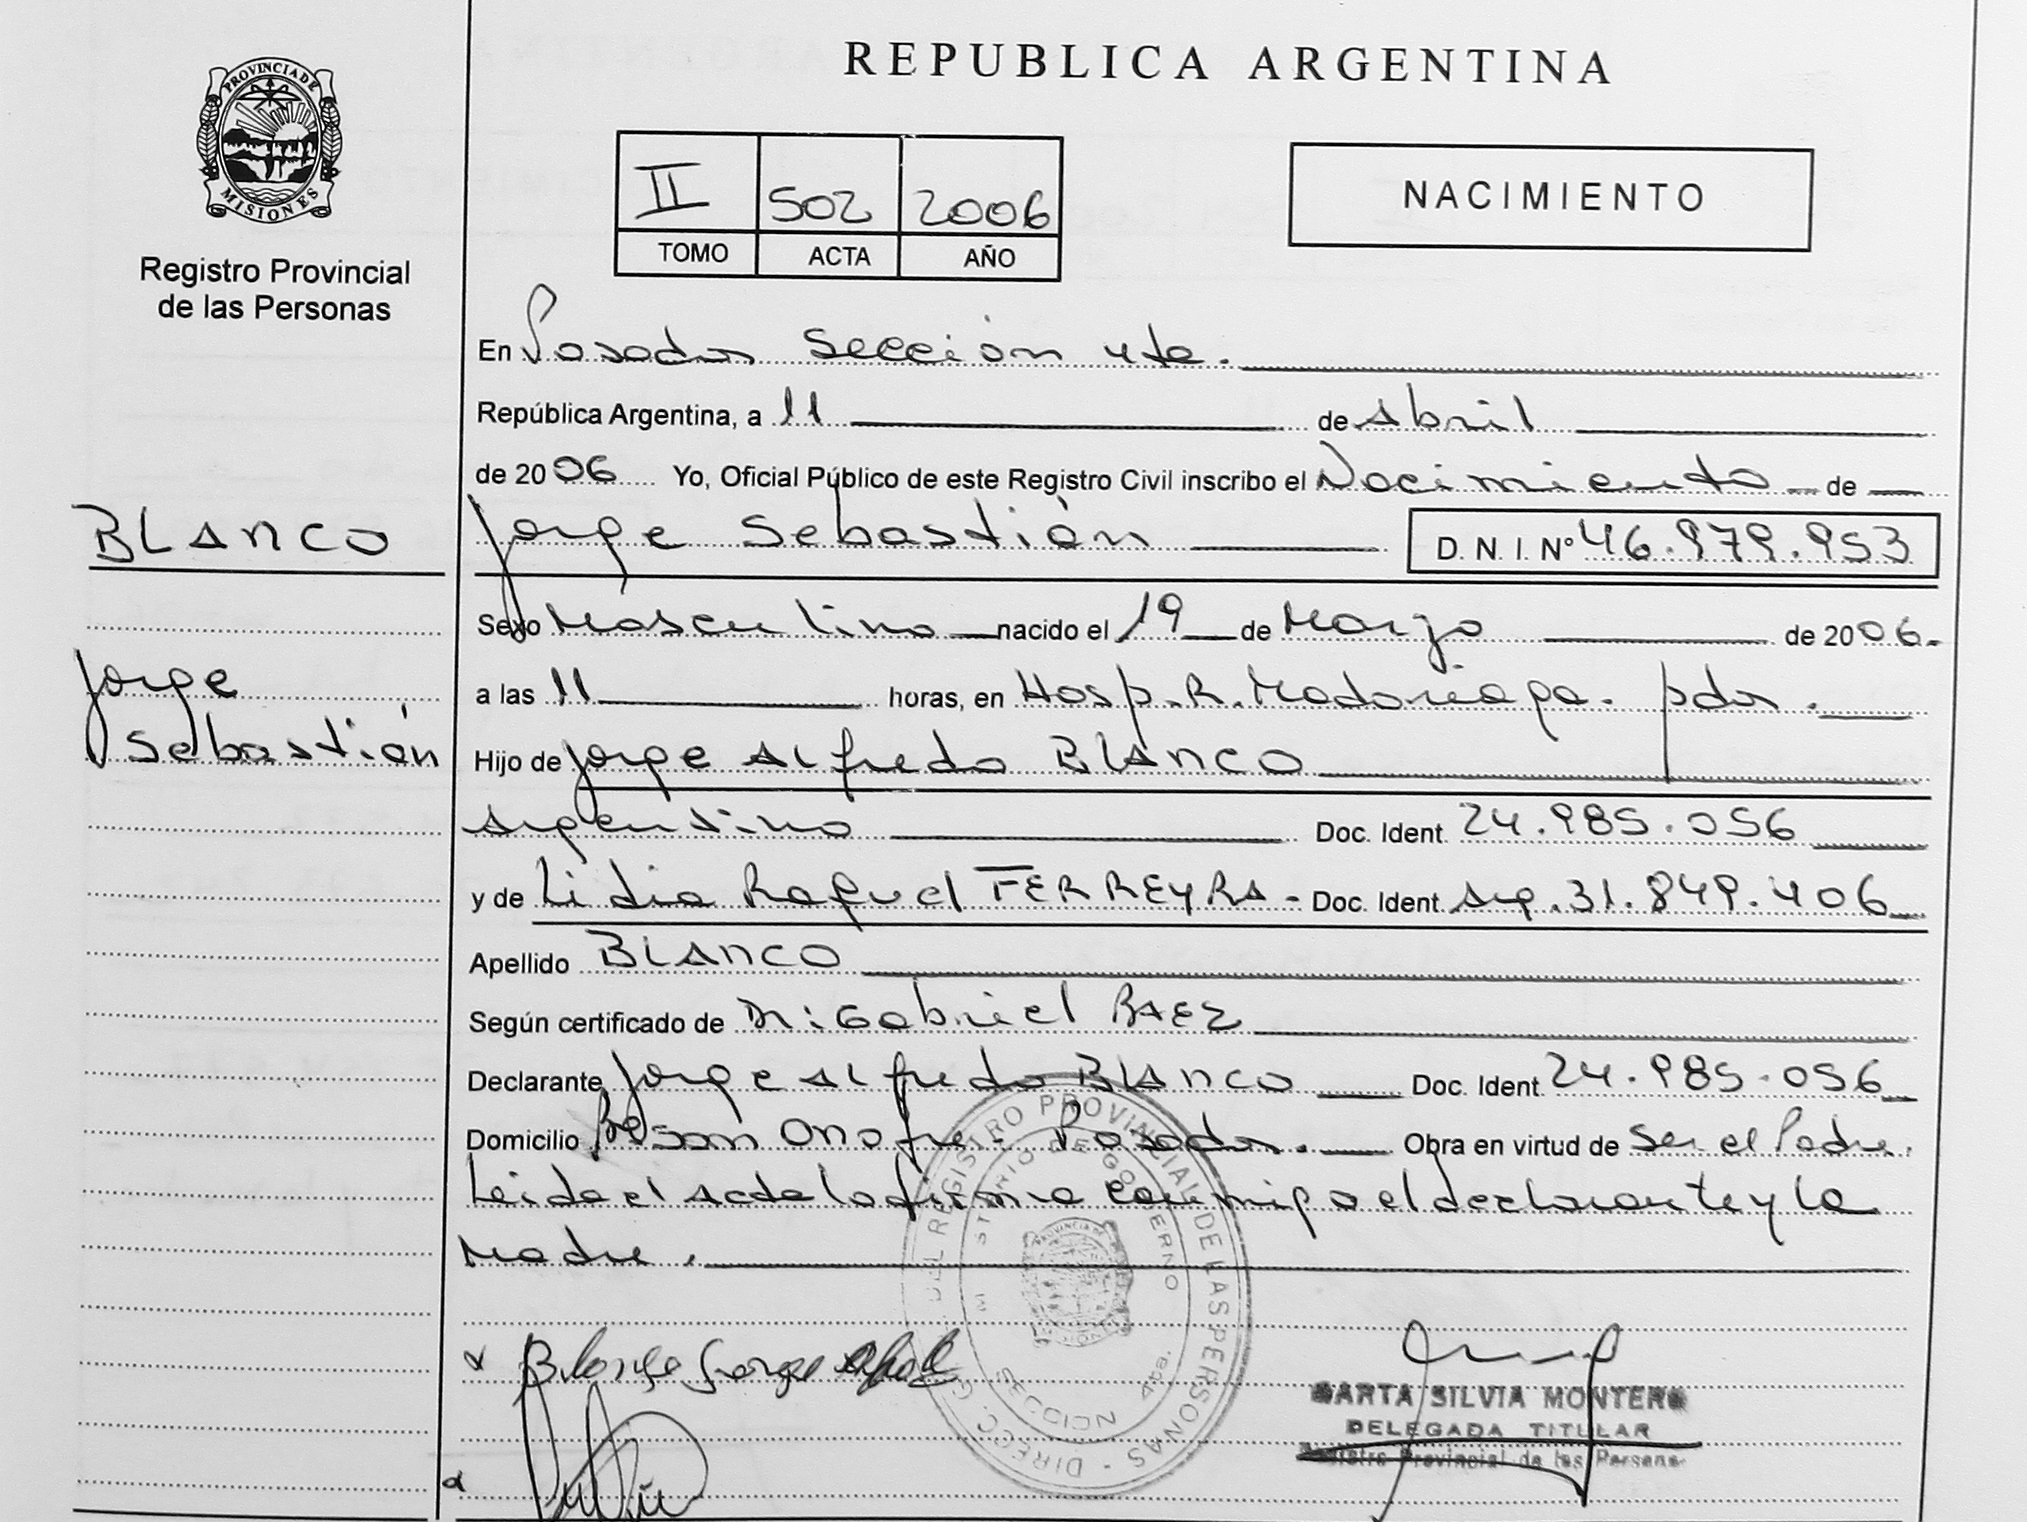 REPUBLICA ARGENTINA
PROVINCIA DE
MISIONES
Registro Provincial
de las Personas
II 502 2006
TOMO ACTA AÑO
NACIMIENTO
En Posadas Sección 4ta.
República Argentina, a 11 de Abril
de 2006 Yo, Oficial Público de este Registro Civil inscribo el Nacimiento de
BLANCO
Jorge Sebastián D. N. I. Nº 46.979.953
Sexo Masculino nacido el 19 de Marzo de 2006.
Jorge
Sebastián
a las 11 horas, en Hosp. R. Madariaga. pdas.
Hijo de Jorge Alfredo BLANCO
Argentino Doc. Ident. 24.985.056
y de Lidia Raquel FERREYRA - Doc. Ident. Arg. 31.849.406
Apellido BLANCO
Según certificado de Dr: Gabriel BAEZ
Declarante Jorge Alfredo BLANCO Doc. Ident. 24.985.056
Domicilio Onofre - Posadas. Obra en virtud de Ser el Padre.
Leida el Acta la firma conmigo el declarante y la
Madre.
DIRECC. GRAL. DEL REGISTRO PROVINCIAL DE LAS PERSONAS
MINISTERIO DE GOBIERNO
Blanco Jorge
MARTA SILVIA MONTERO
DELEGADA TITULAR
Registro Provincial de las Personas